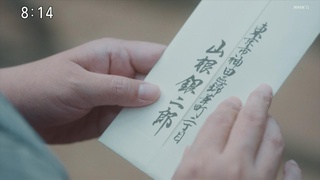 8:14
東京市神田區錦町二丁目
山根銀二郎